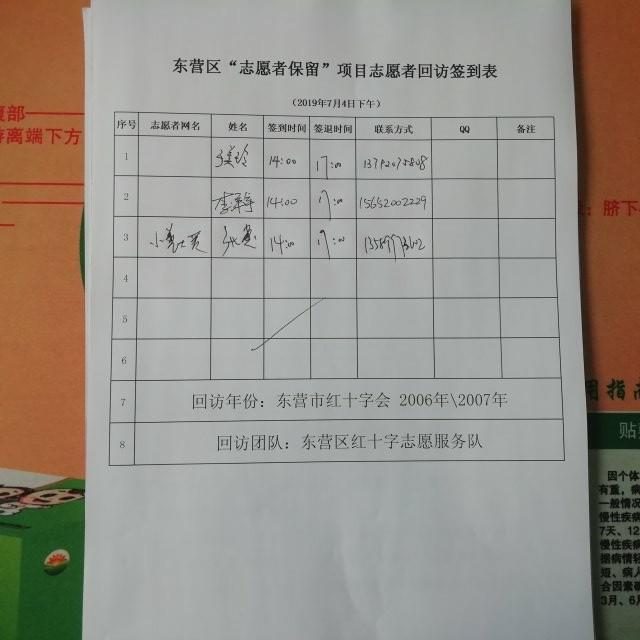 东营区“志愿者保留”项目志愿者回访签到表
（2019年7月4日下午）
序号 志愿者网名 姓名 签到时间 签退时间 联系方式 QQ 备注
1 14:00 17:00
2 14:00 17:00 15652002229
3 14:00 17:00
4
5
6
7 回访年份：东营市红十字会 2006年\2007年
8 回访团队：东营区红十字志愿服务队
腹部
游离端下方
：脐下
用指南
贴
因个体
有重，病
一般情况
慢性疾病
7天、12
慢性疾病
据病情轻
短、病人
合因素确
3月、6月